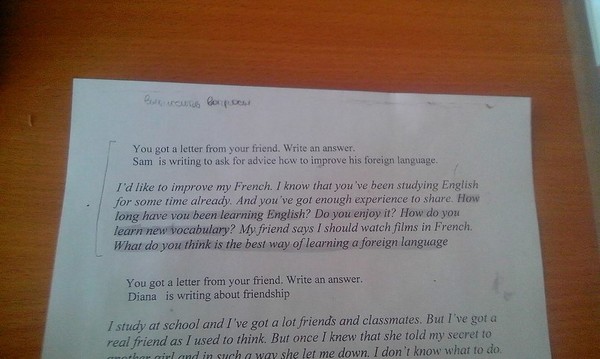 You got a letter from your friend. Write an answer.
Sam is writing to ask for advice how to improve his foreign language.
I'd like to improve my French. I know that you've been studying English
for some time already. And you've got enough experience to share. How
long have you been learning English? Do you enjoy it? How do you
learn new vocabulary? My friend says I should watch films in French.
What do you think is the best way of learning a foreign language
You got a letter from your friend. Write an answer.
Diana is writing about friendship
I study at school and I've got a lot friends and classmates. But I've got a
real friend as I used to think. But once I knew that she told my secret to
another girl and in such a way she let me down. I don't know what to do.